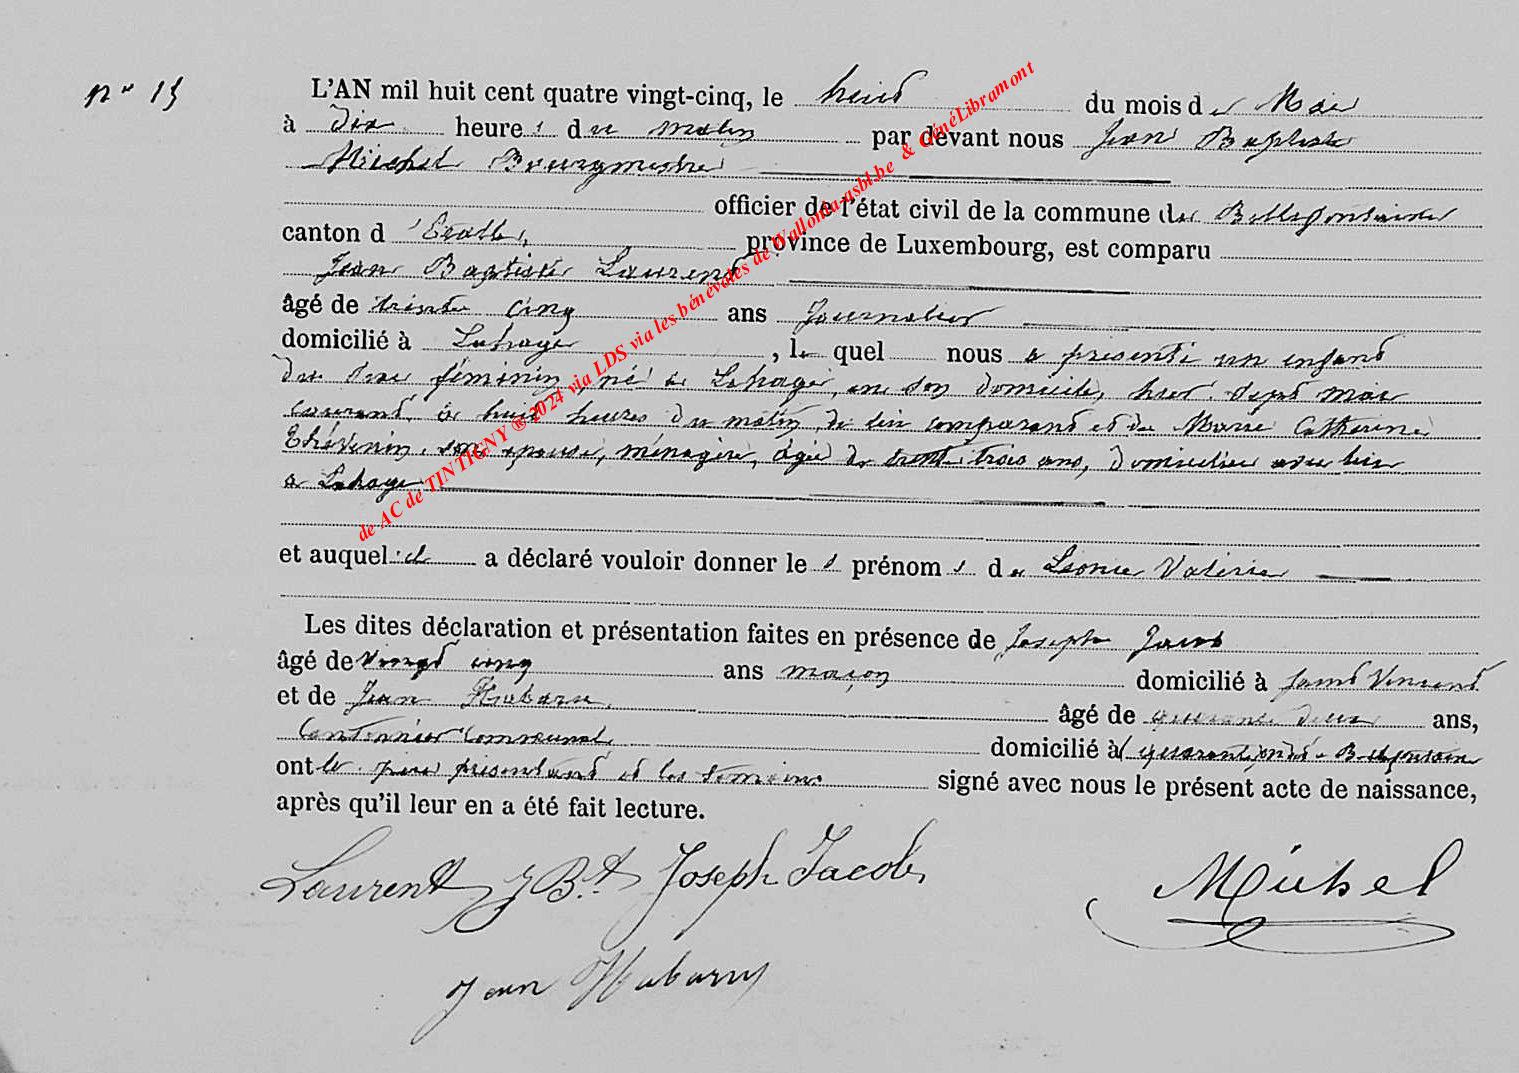 n° 15
L'AN mil huit cent quatre vingt-cinq, le huit du mois de Mai
à dix heures du matin par devant nous Jean Baptiste
Michel Bourgmestre
officier de l'état civil de la commune de Bellefontaine
canton d'Etalle, province de Luxembourg, est comparu
Jean Baptiste Laurent
âgé de trente cinq ans Journalier
domicilié à Lahage, lequel nous a présenté un enfant
du sexe féminin, né à Lahage, en son domicile, hier sept mai
courant à huit heures du matin, de lui comparant et de Marie Catherine
Thévenin, son épouse, ménagère, âgée de trente trois ans, domiciliée avec lui
à Lahage
et auquel il a déclaré vouloir donner les prénoms de Léonie Valérie
Les dites déclaration et présentation faites en présence de Joseph Jacob
âgé de vingt cinq ans maçon domicilié à Saint Vincent
et de Jean âgé de quarante deux ans,
Cantonnier Communal domicilié à Bellefontaine
ont le père présentant et les témoins signé avec nous le présent acte de naissance,
après qu'il leur en a été fait lecture.
Laurent J Bt Joseph Jacob
Michel
Jean
de AC de TINTIGNY ® 2024 via LDS via les bénévoles de Wallonia-asbl.be & GénéLibramont